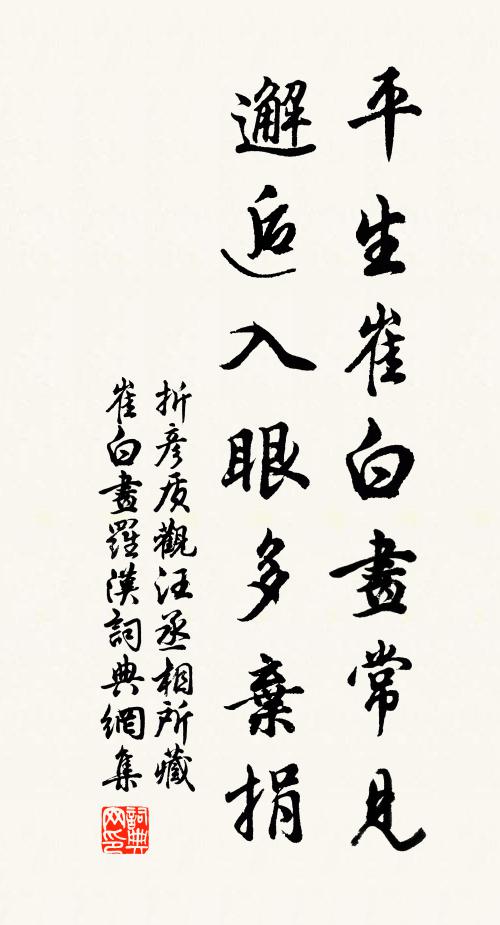 平生崔白畫常見
邂逅入眼多棄捐
折彥质觀汪丞相所藏
崔白畫羅漢詞典網集
詞典
网印